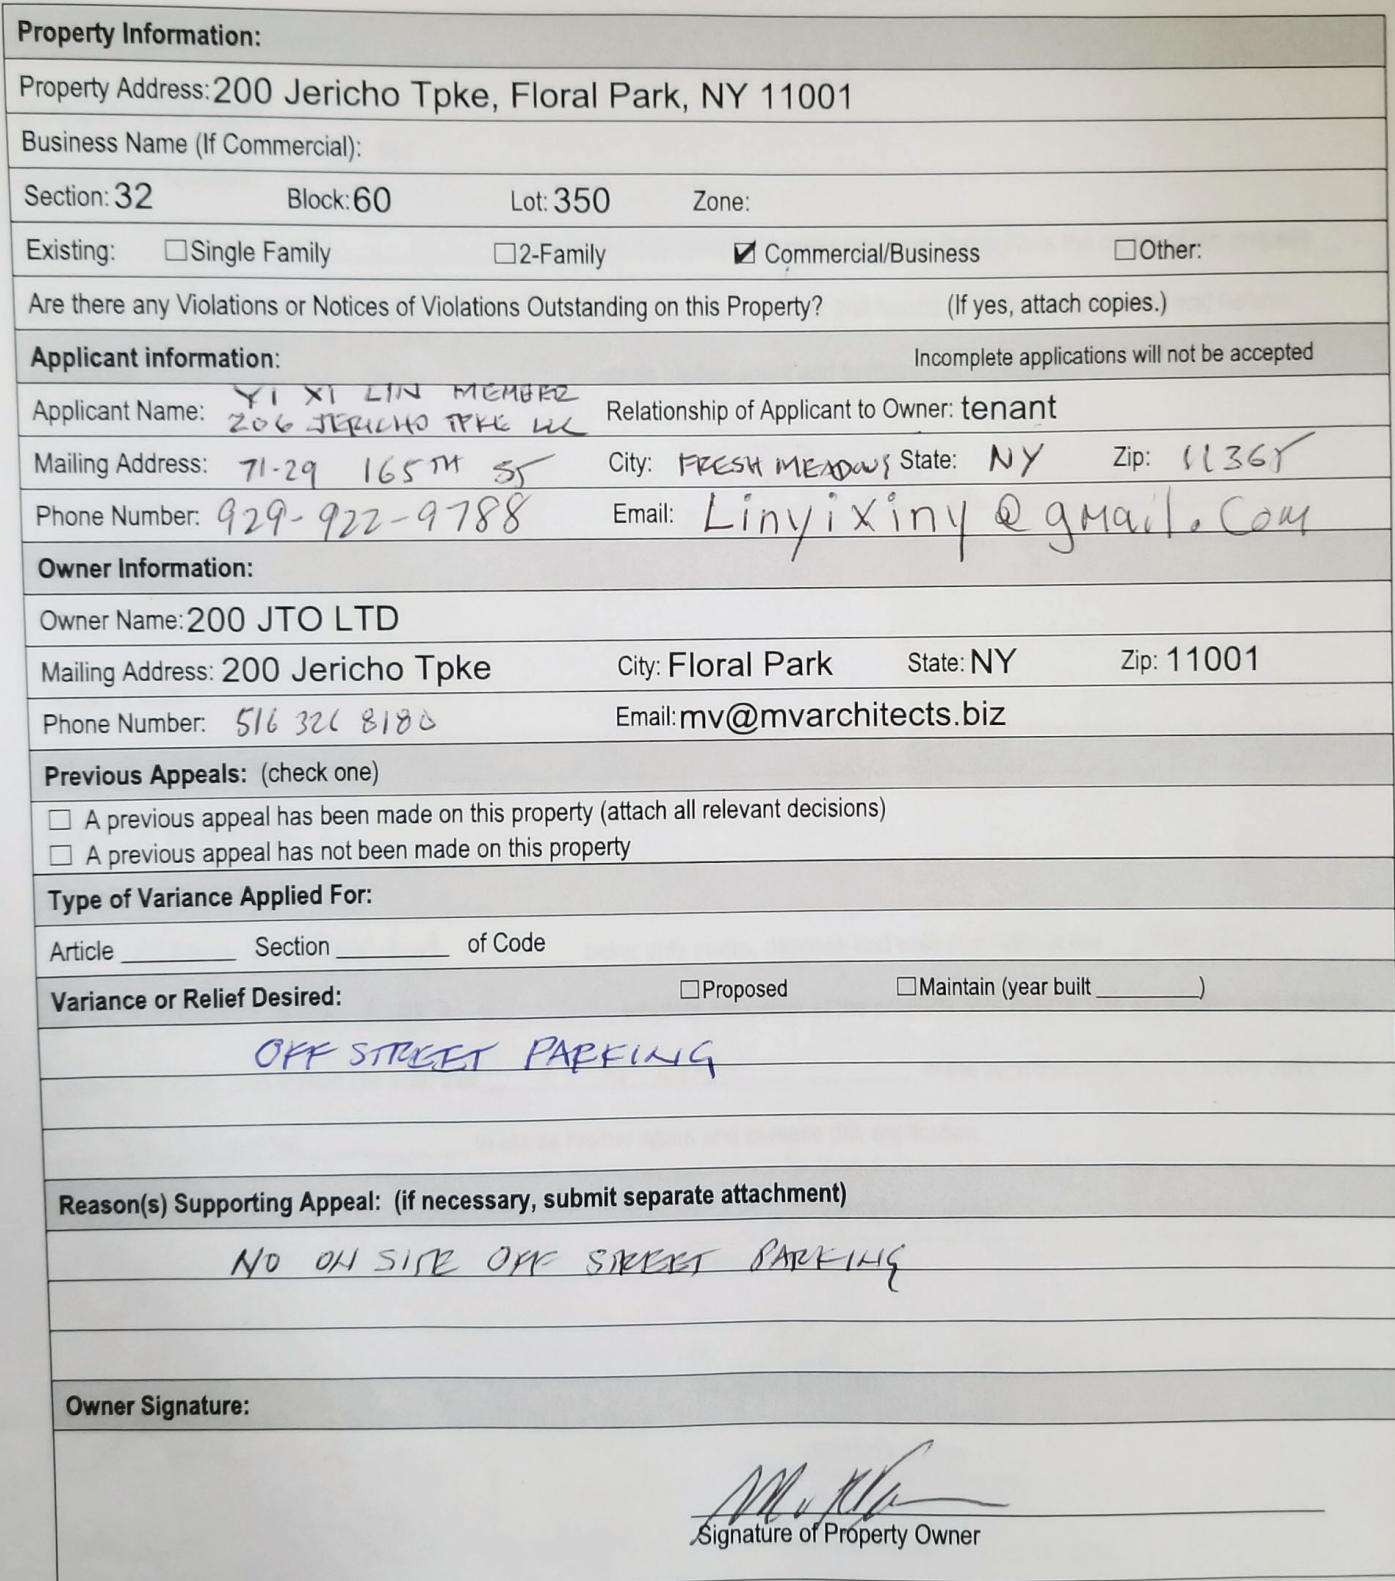 Property Information:
Property Address: 200 Jericho Tpke, Floral Park, NY 11001
Business Name (If Commercial):
Section: 32 Block: 60 Lot: 350 Zone:
Existing: ☐ Single Family ☐ 2-Family ☑ Commercial/Business ☐ Other:
Are there any Violations or Notices of Violations Outstanding on this Property? (If yes, attach copies.)
Applicant information: Incomplete applications will not be accepted
YI XI LIN MEMBER
Applicant Name: 206 JERICHO TPKE LLC Relationship of Applicant to Owner: tenant
Mailing Address: 71-29 165TH ST City: FRESH MEADOWS State: NY Zip: 11365
Phone Number: 929-922-9788 Email: Linyixiny@gmail.com
Owner Information:
Owner Name: 200 JTO LTD
Mailing Address: 200 Jericho Tpke City: Floral Park State: NY Zip: 11001
Phone Number: 516 326 8180 Email: mv@mvarchitects.biz
Previous Appeals: (check one)
☐ A previous appeal has been made on this property (attach all relevant decisions)
☐ A previous appeal has not been made on this property
Type of Variance Applied For:
Article ________ Section ________ of Code
Variance or Relief Desired: ☐ Proposed ☐ Maintain (year built ________)
OFF STREET PARKING
Reason(s) Supporting Appeal: (if necessary, submit separate attachment)
NO ON SITE OFF STREET PARKING
Owner Signature:
Signature of Property Owner